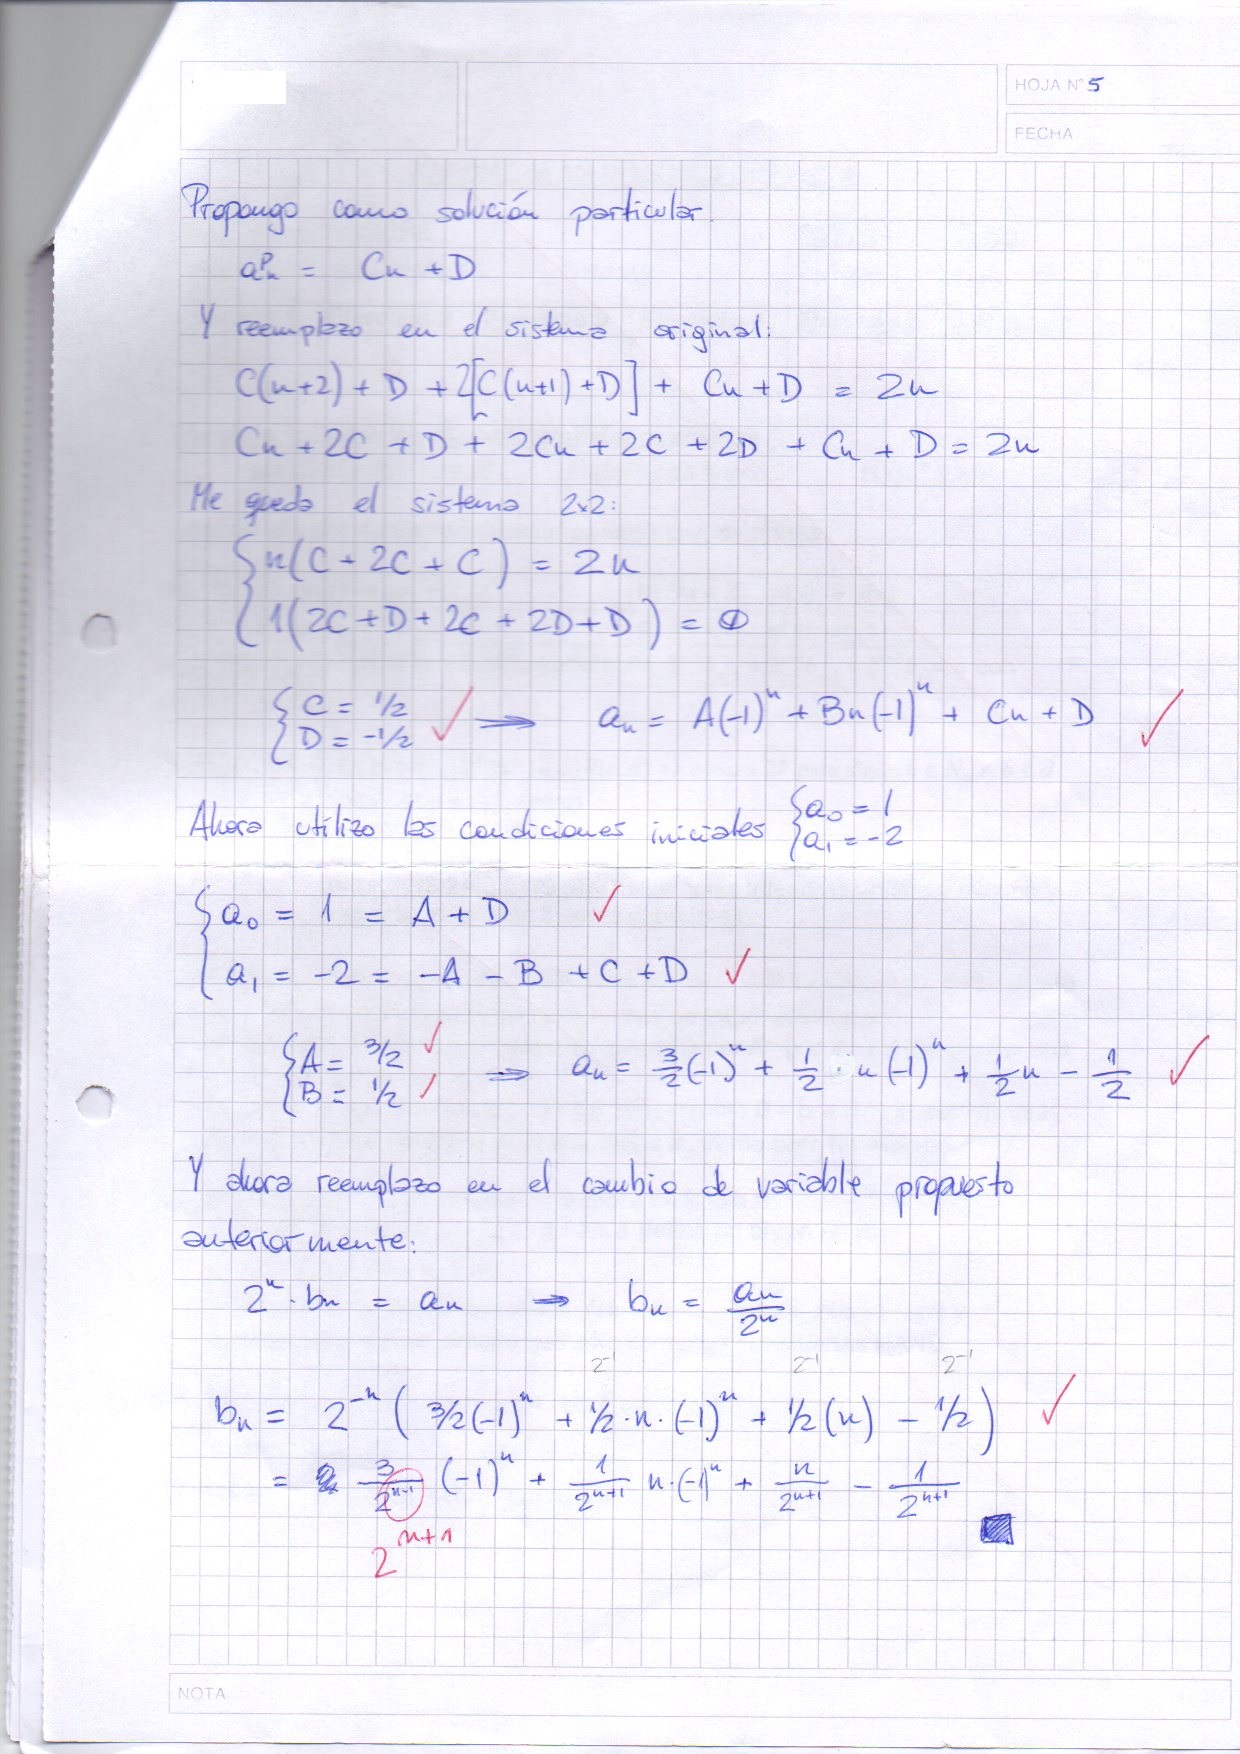 HOJA N° 5
FECHA
Propongo como solución particular.
aᵖₙ = Cn + D
Y reemplazo en el sistema original:
C(n+2) + D + 2[C(n+1) + D] + Cn + D = 2n
Cn + 2C + D + 2Cn + 2C + 2D + Cn + D = 2n
Me queda el sistema 2x2:
{ n(C + 2C + C) = 2n
1(2C + D + 2C + 2D + D) = 0
{ C = 1/2 ✓ ⟹ aₙ = A(-1)ⁿ + Bn(-1)ⁿ + Cn + D ✓
D = -1/2
Ahora utilizo las condiciones iniciales { a₀ = 1
a₁ = -2
{ a₀ = 1 = A + D ✓
a₁ = -2 = -A - B + C + D ✓
{ A = 3/2 ✓ ⟹ aₙ = 3/2 (-1)ⁿ + 1/2 · n (-1)ⁿ + 1/2 n - 1/2 ✓
B = 1/2 ✓
Y ahora reemplazo en el cambio de variable propuesto
anteriormente:
2ⁿ · bₙ = aₙ → bₙ = aₙ/2ⁿ
2⁻¹ 2⁻¹ 2⁻¹
bₙ = 2⁻ⁿ ( 3/2 (-1)ⁿ + 1/2 · n · (-1)ⁿ + 1/2 (n) - 1/2 ) ✓
= 3/2ⁿ⁻¹ (-1)ⁿ + 1/2ⁿ⁺¹ n · (-1)ⁿ + n/2ⁿ⁺¹ - 1/2ⁿ⁺¹
2ⁿ⁺¹
NOTA